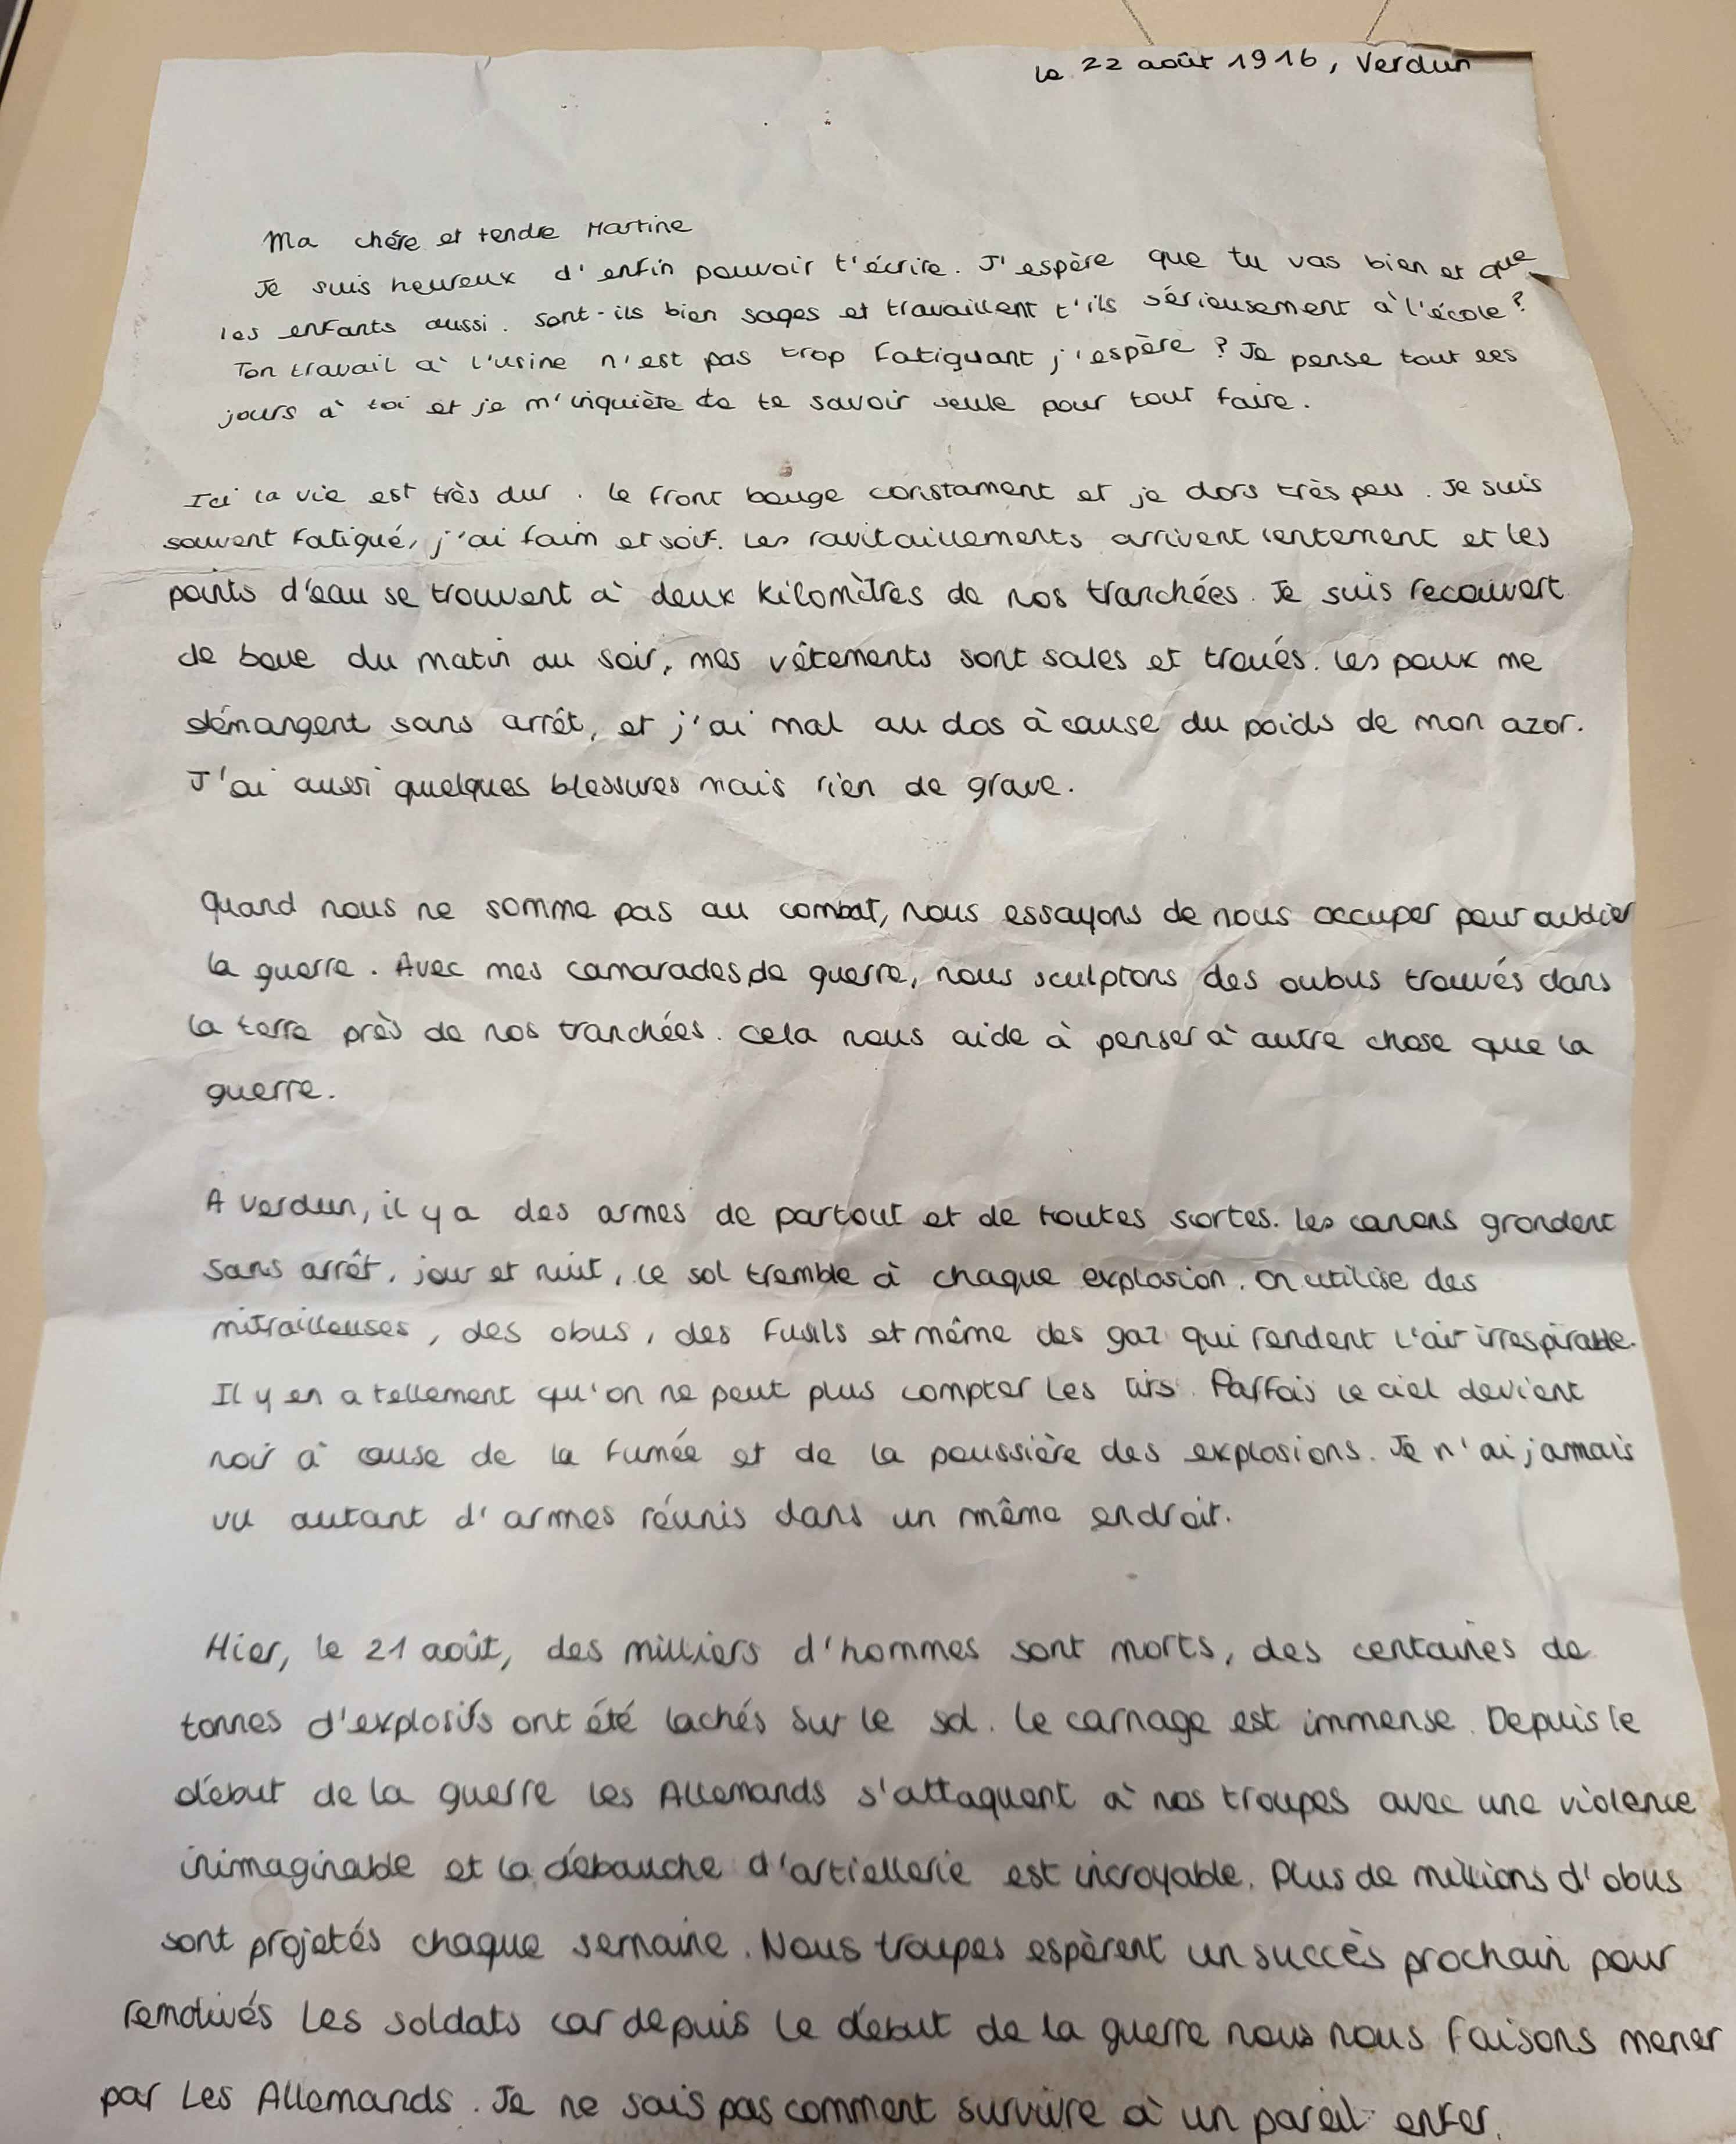 le 22 août 1916, Verdun
Ma chère et tendre Martine
Je suis heureux d'enfin pouvoir t'écrire. J'espère que tu vas bien et que
les enfants aussi. Sont-ils bien sages et travaillent t'ils sérieusement à l'école ?
Ton travail à l'usine n'est pas trop fatiguant j'espère ? Je pense tout les
jours à toi et je m'inquiète de te savoir seule pour tout faire.
Ici la vie est très dur. Le front bouge constament et je dors très peu. Je suis
souvent fatigué, j'ai faim et soif. Les ravitaillements arrivent lentement et les
points d'eau se trouvent à deux kilomètres de nos tranchées. Je suis recouvert
de boue du matin au soir, mes vêtements sont sales et troués. Les poux me
démangent sans arrêt, et j'ai mal au dos à cause du poids de mon azor.
J'ai aussi quelques blessures mais rien de grave.
Quand nous ne somme pas au combat, nous essayons de nous occuper pour oublier
la guerre. Avec mes camarades de guerre, nous sculptons des oubus trouvés dans
la terre près de nos tranchées. Cela nous aide à penser à autre chose que la
guerre.
A Verdun, il y a des armes de partout et de toutes sortes. Les canons grondent
sans arrêt, jour et nuit, le sol tremble à chaque explosion. On utilise des
mitrailleuses, des obus, des fusils et même des gaz qui rendent l'air irrespirable.
Il y en a tellement qu'on ne peut plus compter les tirs. Parfois le ciel devient
noir à cause de la fumée et de la poussière des explosions. Je n'ai jamais
vu autant d'armes réunis dans un même endroit.
Hier, le 21 août, des milliers d'hommes sont morts, des centaines de
tonnes d'explosifs ont été lachés sur le sol. Le carnage est immense. Depuis le
début de la guerre les Allemands s'attaquent à nos troupes avec une violence
inimaginable et la débauche d'artiellerie est incroyable. Plus de millions d'obus
sont projetés chaque semaine. Nous troupes espèrent un succès prochain pour
remotivés les soldats car depuis le début de la guerre nous nous faisons mener
par les Allemands. Je ne sais pas comment survivre à un pareil enfer.